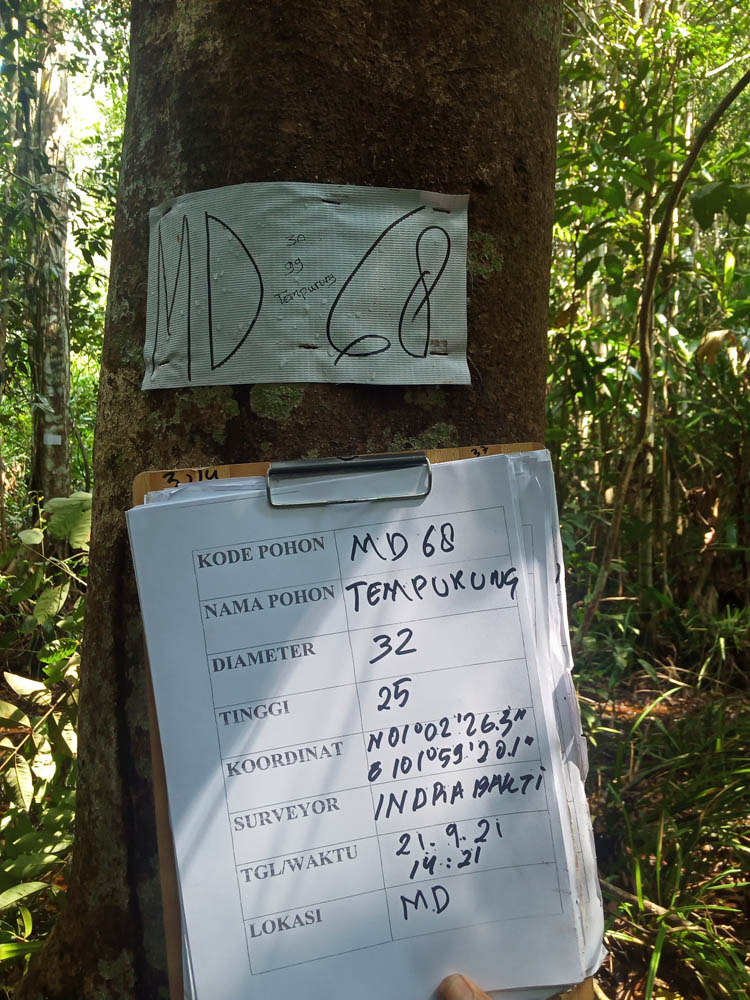 MD 68
30
99
Tempurung
KODE POHON MD 68
NAMA POHON TEMPURUNG
DIAMETER 32
TINGGI 25
KOORDINAT N01°02'26.3"
E 101°59'20.1"
SURVEYOR INDRA BAKTI
TGL/WAKTU 21.9.21
14:21
LOKASI MD